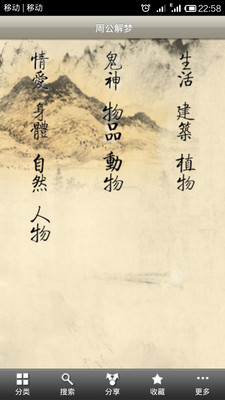 移动 | 移动
22:58
周公解梦
生活 建築 植物
鬼神 物品 動物
情愛 身體 自然 人物
分类
搜索
分享
收藏
更多